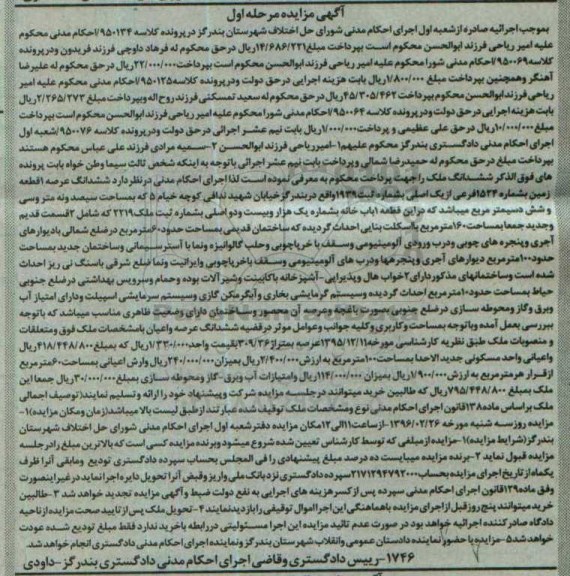 آگهی مزایده مرحله اول
بموجب اجرائیه صادره از شعبه اول اجرای احکام مدنی شورای حل اختلاف شهرستان بندرگز در پرونده کلاسه ۹۵۰۱۳۴/احکام مدنی محکوم
علیه امیر ریاحی فرزند ابوالحسن محکوم است بپرداخت مبلغ ۱۴/۶۸۶/۲۲۱ریال در حق محکوم له فرهاد داوچی فرزند فریدون ودر پرونده
کلاسه ۹۵۰۰۶۹/احکام مدنی شورا محکوم علیه امیر ریاحی فرزند ابوالحسن محکوم است بپرداخت ۲۲/۰۰۰/۰۰۰ریال در حق محکوم له علیرضا
آهنگر وهمچنین بپرداخت مبلغ ۱/۸۰۰/۰۰۰ ریال بابت هزینه اجرایی در حق دولت ودر پرونده کلاسه ۹۵۰۱۲۵/احکام مدنی محکوم علیه امیر
ریاحی فرزند ابوالحسن محکوم بپرداخت ۴۵/۳۰۵/۴۶۲ ریال در حق محکوم له سعید تمسکنی فرزند روح اله وبپرداخت مبلغ ۲/۲۶۵/۲۷۳ریال
بابت هزینه اجرایی در حق دولت ودر پرونده کلاسه ۹۵۰۰۶۴/احکام مدنی شورا محکوم علیه امیر ریاحی فرزند ابوالحسن محکوم است بپرداخت
مبلغ ۱۰/۰۰۰/۰۰۰ریال در حق علی عظیمی و پرداخت ۱/۰۰۰/۰۰۰ریال بابت نیم عشر اجرائی در حق دولت ودر پرونده کلاسه ۹۵۰۰۷۶/شعبه اول
اجرای احکام مدنی دادگستری بندرگز محکوم علیهم ۱-امیر ریاحی فرزند ابوالحسن ۲-سمیه مرادی فرزند علی عباس محکوم هستند
بپرداخت مبلغ در حق محکوم له حمیدرضا شمالی وپرداخت بابت نیم عشر اجرائی باتوجه به اینکه شخص ثالث سیما وطن خواه بابت پرونده
های فوق الذکر ششدانگ ملک را جهت پرداخت محکوم به معرفی نموده است لذا اجرای احکام مدنی در نظر دارد ششدانگ عرصه ۱قطعه
زمین بشماره ۱۵۲۴فرعی از یک اصلی بشماره ثبت ۱۹۳۹واقع در بندرگز خیابان شهید بذاقی کوچه خیام ۵ که بمساحت سیصد ونه متر وسی
و شش دسیمتر مربع میباشد که در این قطعه ۱باب خانه بشماره یک هزار وبیست ودو اصلی بشماره ثبت ملک ۲۲۱۹که شامل ۲قسمت قدیم
وجدید جمعا بمساحت ۱۶۰مترمربع بااسکلت بنایی احداث گردیده که ساختمان قدیمی بمساحت حدود ۶۰مترمربع در ضلع شمالی بادیوارهای
آجری وپنجره های چوبی ودرب ورودی آلومینیومی وسقف با خرپاچوبی وحلب گالوانیزه ونما با آستر سیمانی وساختمان جدید بمساحت
حدود ۱۰۰مترمربع دیوارهای آجری وپنجرهها ودرب های آلومینیومی وسقف با خرپاچوبی وایرانیت ونما ضلع شرقی باسنگ نی ریز احداث
شده است وساختمانهای مذکور دارای ۲خواب هال وپذیرایی-آشپزخانه باکابینت وشیرآلات بوده وحمام وسرویس بهداشتی در ضلع جنوبی
حیاط بمساحت حدود ۱۰مترمربع احداث گردیده وسیستم گرمایشی بخاری وآبگرمکن گازی وسیستم سرمایشی اسپیلت ودارای امتیاز آب
وبرق وگاز ومحوطه سازی در ضلع جنوبی بصورت باغچه وعرصه آن محصور و ساختمان دارای وضعیت ظاهری مناسب میباشد که باتوجه
ببررسی بعمل آمده وباتوجه بمساحت وکاربری وکلیه جوانب وعوامل موثر در قضیه ششدانگ عرصه واعیان بامشخصات ملک فوق ومتعلقات
و منصوبات ملک طبق نظریه کارشناسی مورخه ۱۳۹۵/۱۲/۱۱عرصه بمتراژ ۳۰۹/۳۶بقیمت واحد ۱/۳۳۰/۰۰۰ریال که بمبلغ ۴۱۸/۴۴۸/۸۰۰ریال
واعیانی واحد مسکونی جدید الاحداث بمساحت ۱۰۰مترمربع به ارزش ۲/۴۰۰/۰۰۰ریال بمیزان ۲۴۰/۰۰۰/۰۰۰ریال وارش اعیانی بمساحت ۶۰مترمربع
از قرار هر مترمربع به ارزش ۱/۹۰۰/۰۰۰ریال بمیزان ۱۱۴/۰۰۰/۰۰۰ ریال وامتیازات آب وبرق-گاز ومحوطه سازی بمبلغ ۳۰/۰۰۰/۰۰۰ریال جمعا این
ملک بمبلغ ۷۹۵/۴۴۸/۸۰۰ریال که طالبین خرید میتوانند در جلسه مزایده شرکت وپیشنهاد خود را ارائه و تسلیم نمایند(توصیف اجمالی
ملک براساس ماده ۱۳۸قانون اجرای احکام مدنی نوع ومشخصات ملک توقیف شده عبارتند از طبق لیست بالا میباشد(زمان ومکان مزایده)۱-
مزایده روز سه شنبه مورخه ۱۳۹۶/۰۲/۲۶ -ازساعت ۱۱الی ۱۲مکان مزایده دفتر شعبه اول اجرای احکام مدنی شورای حل اختلاف شهرستان
بندرگز(شرایط مزایده)۱-مزایده از مبلغی که توسط کارشناس تعیین شده شروع میشود وبرنده مزایده کسی است که بالاترین مبلغ را در جلسه
مزایده قبول نماید ۲-برنده مزایده میبایست ده درصد مبلغ پیشنهادی را فی المجلس بحساب سپرده دادگستری تودیع ومابقی آنرا ظرف
یکماه از تاریخ اجرای مزایده بحساب ۲۱۷۱۲۹۴۷۹۲۰۰۰سپرده دادگستری نزد بانک ملی واریز وقبض آنرا تحویل دایره اجرا نماید در غیر اینصورت
وفق ماده ۱۲۹قانون اجرای احکام مدنی سپرده پس از کسر هزینه های اجرایی به نفع دولت ضبط وآگهی مزایده تجدید خواهد شد ۳-طالبین
خرید میتوانند پنج روز قبل از اجرای مزایده باهماهنگی این اجرا اموال توقیفی را بازدید نمایند ۴-تحویل ملک پس از تایید صحت مزایده از ناحیه
دادگاه صادر کننده اجرائیه خواهد بود در صورت عدم تائید مزایده این اجرا مسئولیتی در رابطه باخرید ندارد فقط مبلغ تودیع شده عودت
خواهد شد ۵-مزایده با حضور نماینده دادستان عمومی وانقلاب شهرستان بندرگز ونماینده اجرای احکام مدنی دادگستری انجام خواهد شد.
۱۷۴۶-رییس دادگستری وقاضی اجرای احکام مدنی دادگستری بندرگز-داودی